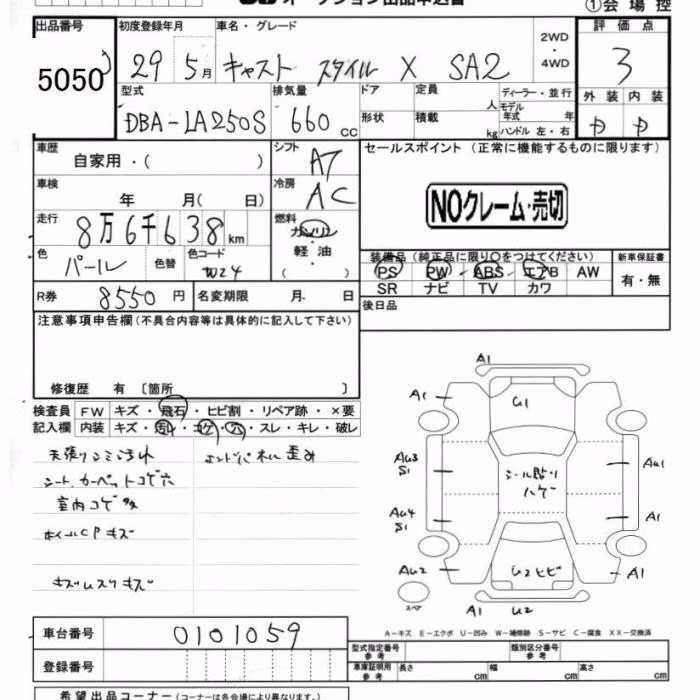 オークション出品申込書
①会場控
出品番号 初度登録年月 車名・グレード 2WD・4WD 評価点
5050 29 5月 キャスト スタイル X SA2 3
型式 排気量 ドア 定員 人 ディーラー・並行 外装 内装
DBA-LA250S 660cc 形状 積載 kg モデル年式 年 ハンドル 左・右
車歴 シフト セールスポイント(正常に機能するものに限ります)
自家用・( ) AT
車検 冷房
年 月( 日) AC NOクレーム・売切
走行 燃料
8万6千638km ガソリン・軽油・( )
色 色替 色コード
パール W24
装備品(純正品に限り○をつけてください) 新車保証書
PS PW ABS エアB AW 有・無
SR ナビ TV カワ
R券 8550円 名変期限 月 日
後日品
注意事項申告欄(不具合内容等は具体的に記入して下さい)
修復歴 有 〔箇所 〕
検査員記入欄 FW キズ・飛石・ヒビ割・リペア跡・×要
内装 キズ・汚れ・コゲ・穴・スレ・キレ・破レ
天張りシミ汚れ エンドパネル歪み
シート、カーペットコゲ穴
室内コゲ多
ホイールCPキズ
A1
A1 U1
AU3
S1 シール貼り AU1
ハゲ
AU4
S1 A1
AU2 U2ヒビ A1
スペア A1 U2
A－キズ E－エクボ U－凹み W－補修跡 S－サビ C－腐食 XX－交換済
車台番号 0101059
登録番号
型式指定番号 参考 類別区分番号 参考
車庫証明用 参考 長さ cm 幅 cm 高さ cm
希望出品コーナー(コーナーは各会場により異なります。)